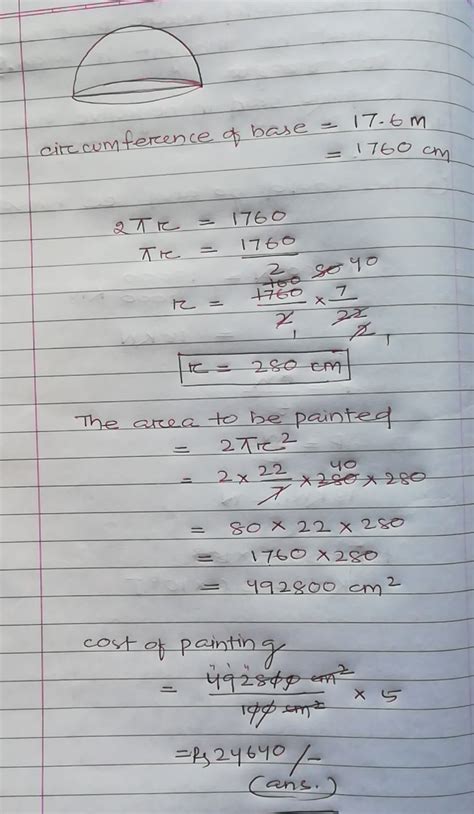 circumference of base = 17.6 m
= 1760 cm
2πr = 1760
πr = 1760/2
r = 1760/2 × 7/22
160 80 40
2 1 1
r = 280 cm
The area to be painted
= 2πr²
= 2 × 22/7 × 280 × 280
40
= 80 × 22 × 280
= 1760 × 280
= 492800 cm²
cost of painting
= 492800 cm²/100 cm² × 5
= Rs 24640/-
(ans.)